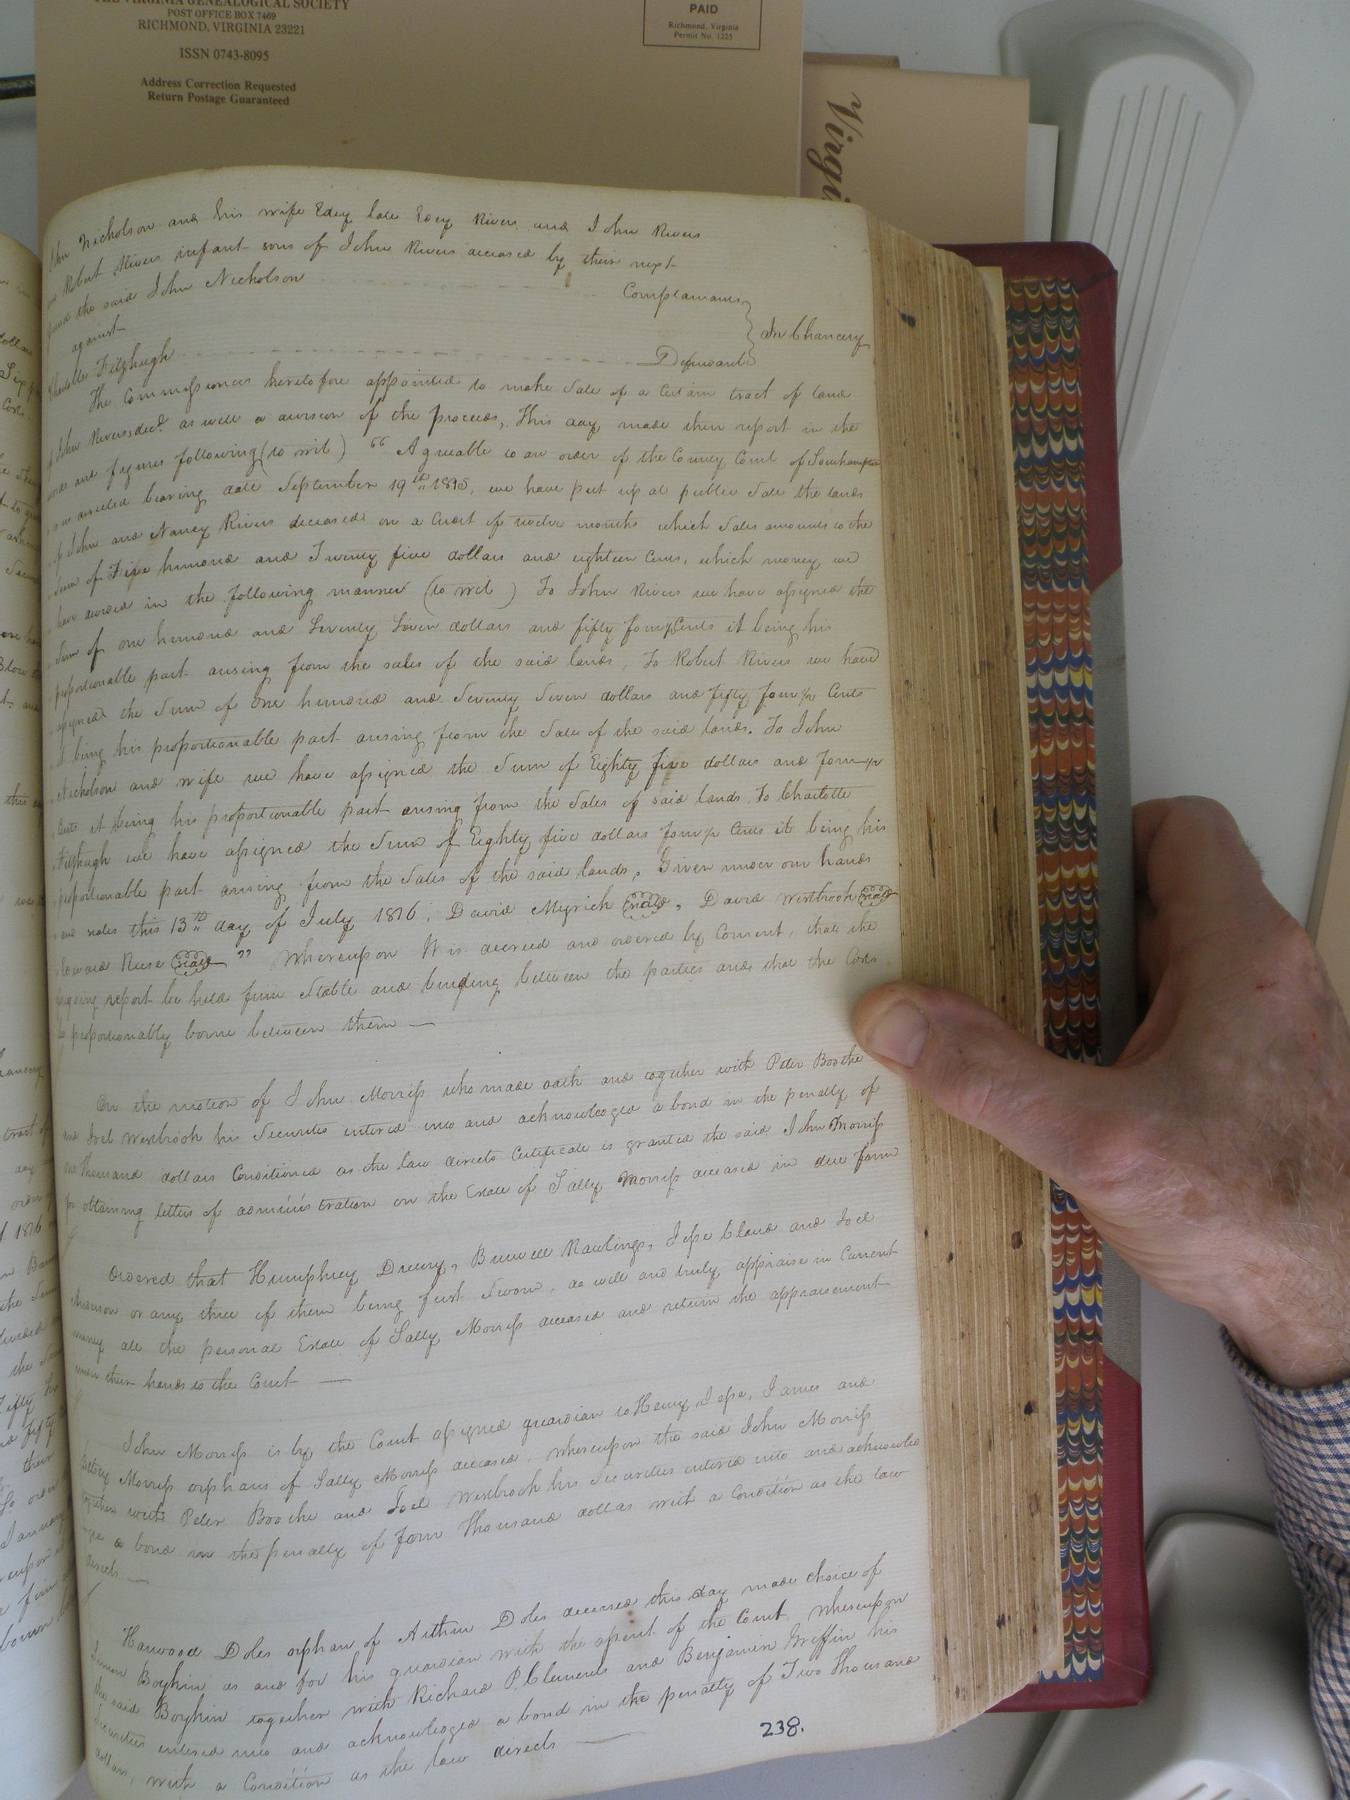 THE VIRGINIA GENEALOGICAL SOCIETY
POST OFFICE BOX 7469
RICHMOND, VIRGINIA 23221
ISSN 0743-8095
Address Correction Requested
Return Postage Guaranteed
PAID
Richmond, Virginia
Permit No. 1225
Virgi
John Nicholson and his wife Edey late Edey Rivers and John Rivers
Robert Rivers infant sons of John Rivers deceased by their next
friend the said John Nicholson Complainants
against In Chancery
Charlotte Fitzhugh Defendant
The Commissioners heretofore appointed to make Sale of a certain tract of land
of John Rivers decd. as well a division of the proceeds, This day made their report in the
words and figures following (to wit) "Agreeable to an order of the County Court of Southampton
bearing date September 19th 1815, we have put up at public Sale the lands
of John and Nancy Rivers deceased on a Credit of twelve months which Sales amounts to the
Sum of Five hundred and Twenty five dollars and eighteen Cents, which money we
have divided in the following manner (to wit) To John Rivers we have assigned the
Sum of one hundred and Seventy Seven dollars and fifty four Cents it being his
proportionable part arising from the sales of the said lands, To Robert Rivers we have
assigned the Sum of One hundred and Seventy Seven dollars and fifty four Cents
it being his proportionable part arising from the Sale of the said lands. To John
Nicholson and wife we have assigned the Sum of Eighty five dollars and four
Cents it being his proportionable part arising from the Sales of said lands To Charlotte
Fitzhugh we have assigned the Sum of Eighty five dollars four Cents it being his
proportionable part arising from the Sales of the said lands, Given under our hands
and seales this 13th day of July 1816, David Myrick seal, David Westbrook seal
Edward Reese seal" Whereupon It is decreed and ordered by Consent, that the
foregoing report be held firm Stable and binding between the parties and that the Costs
be proportionably borne between them —
On the motion of John Morriss who made oath and together with Peter Boothe
and Joel Westbrook his Securities entered into and acknowledged a bond in the penalty of
one thousand dollars Conditioned as the law directs Certificate is granted the said John Morriss
for obtaining letters of administration on the Estate of Sally Morriss deceased in due form
Ordered that Humphrey Drewry, Burwell Rawlings, Jesse Claud and Joel
or any three of them being first Sworn, do well and truly appraise in Current
money all the personal Estate of Sally Morriss deceased and return the appraisement
under their hands to the Court —
John Morriss is by the Court assigned guardian to Henry, Jesse, James and
Morriss orphans of Sally Morriss deceased, whereupon the said John Morriss
together with Peter Boothe and Joel Westbrook his Securities entered into and acknowled
ged a bond in the penalty of four thousand dollars with a Condition as the law
directs —
Harwood Doles orphan of Arthur Doles deceased this day made choice of
Simon Boykin as and for his guardian with the assent of the Court whereupon
the said Boykin together with Richard P. Clements and Benjamin Griffin his
Securities entered into and acknowledged a bond in the penalty of Two thousand
dollars, with a Condition as the law directs —
238.